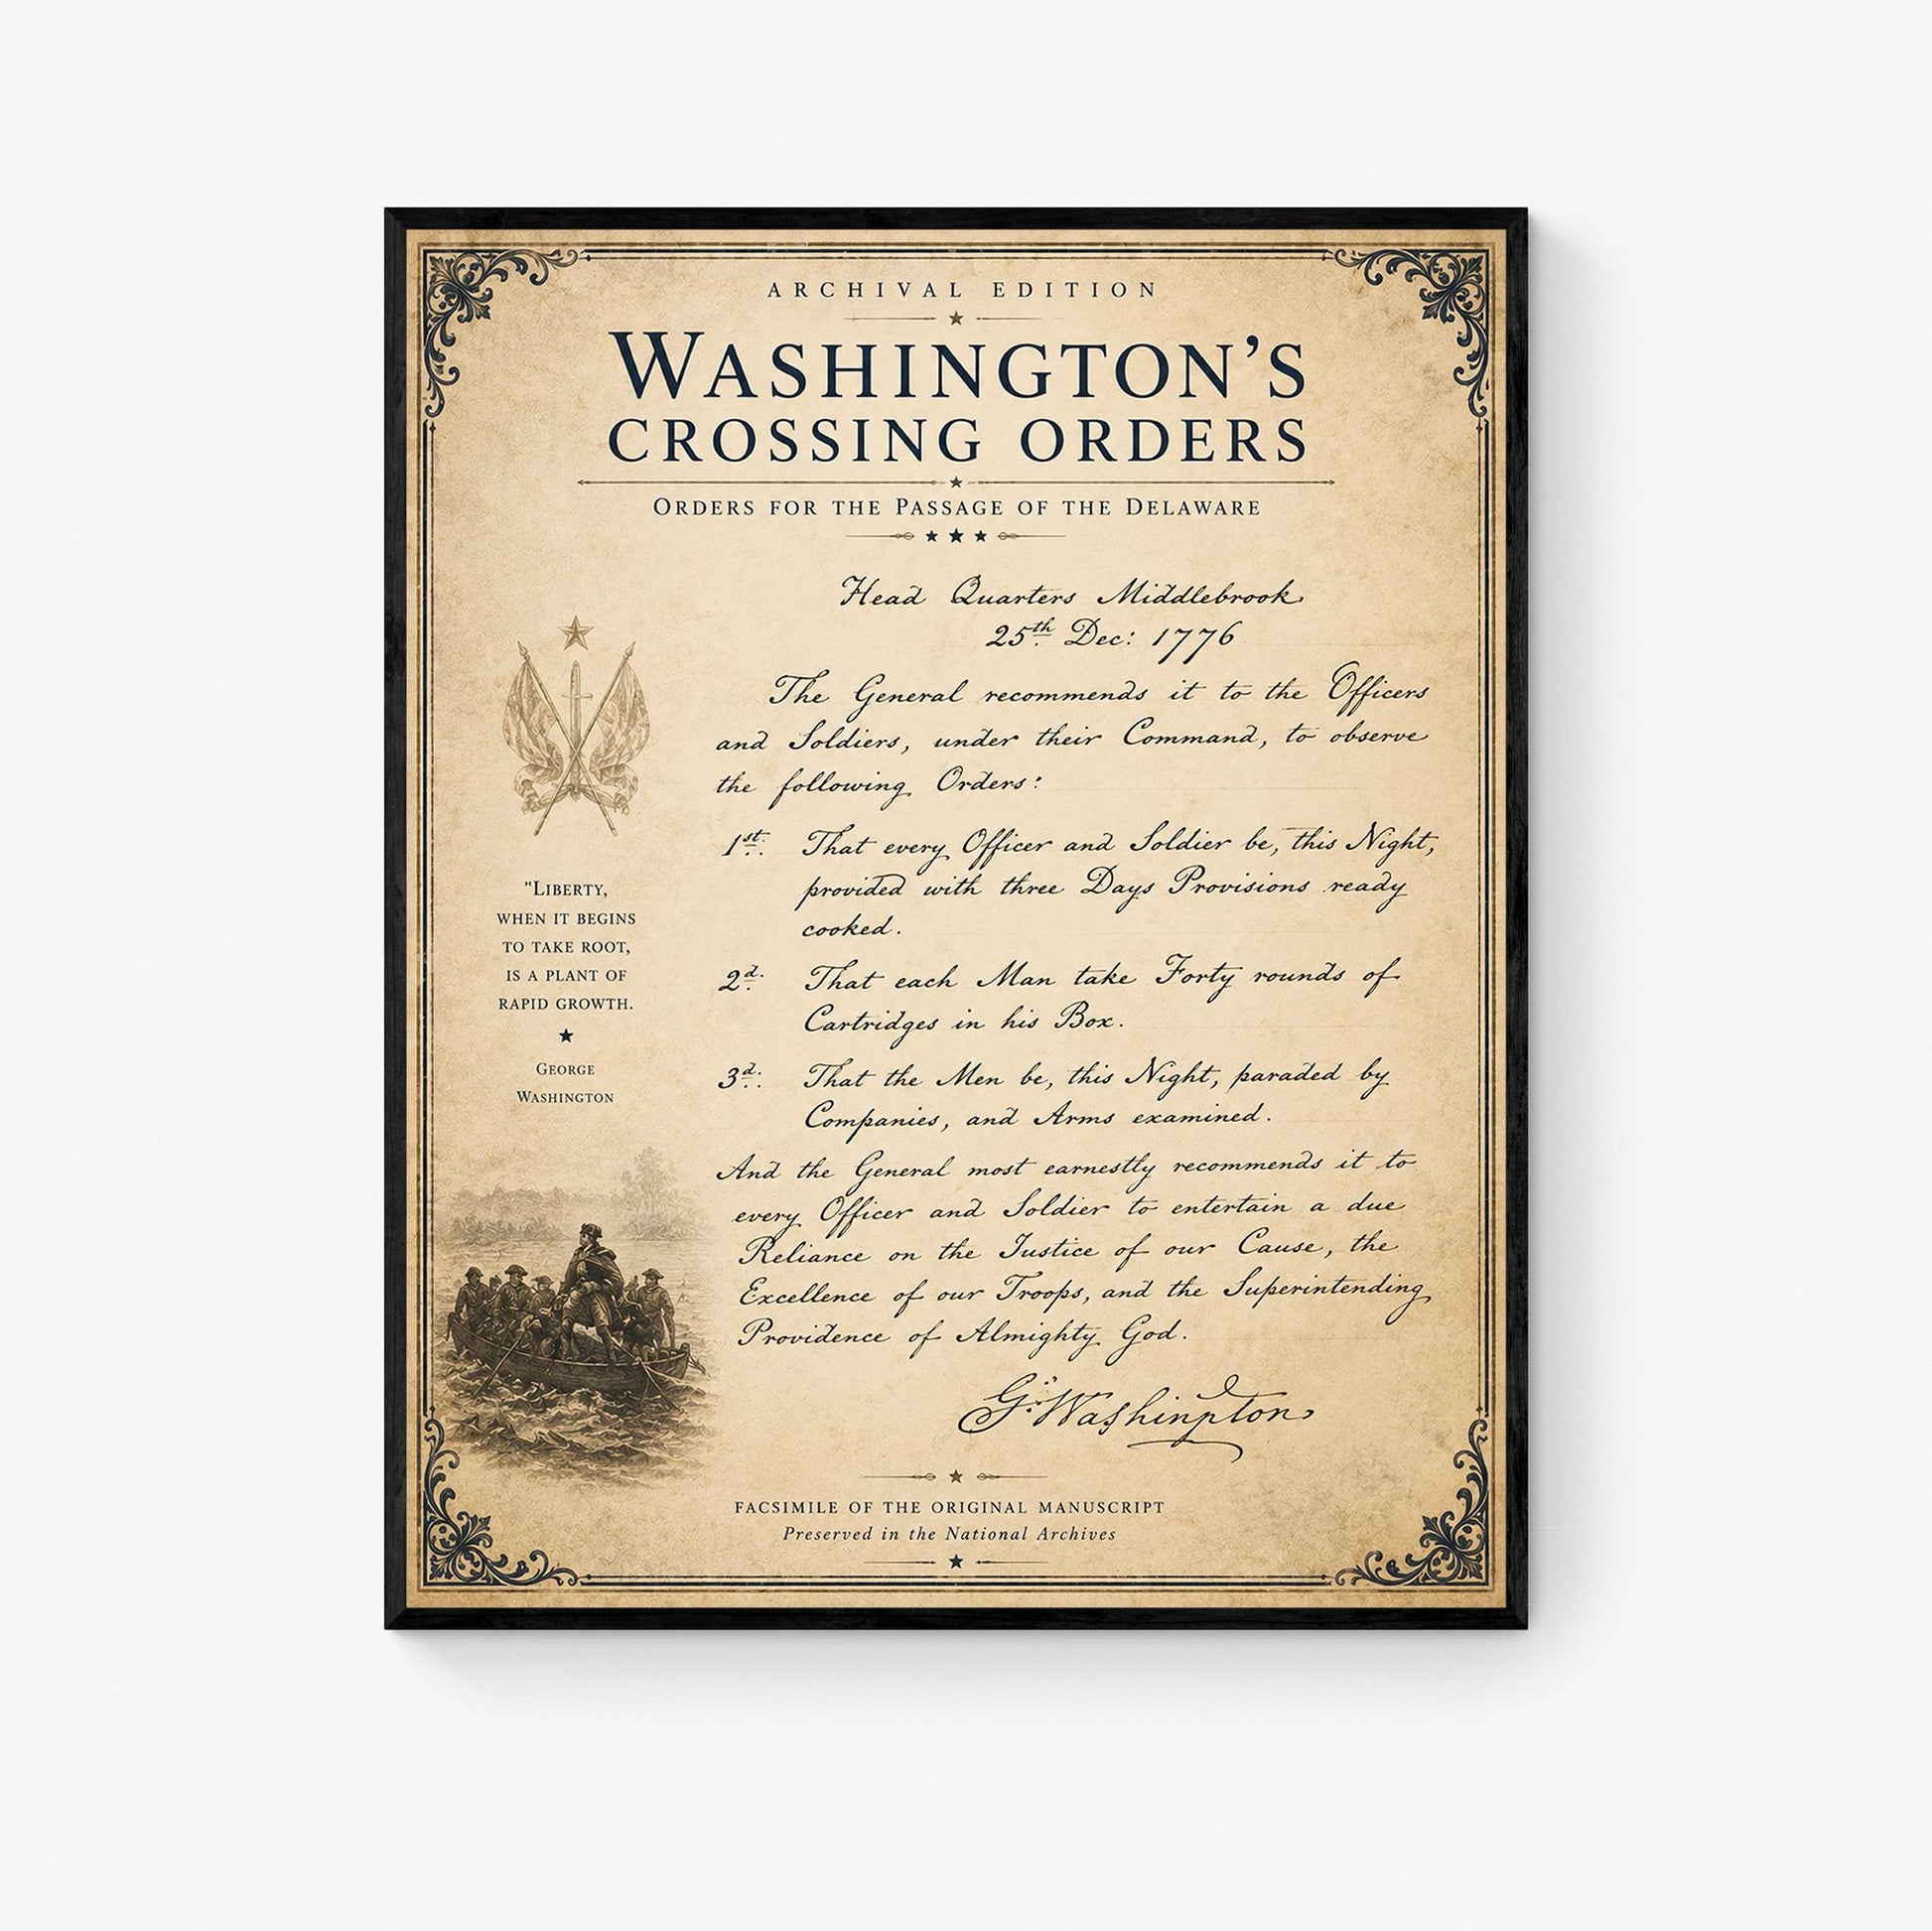 ARCHIVAL EDITION
WASHINGTON'S
CROSSING ORDERS
ORDERS FOR THE PASSAGE OF THE DELAWARE
Head Quarters Middlebrook
25th Dec: 1776
The General recommends it to the Officers
and Soldiers, under their Command, to observe
the following Orders:
1st. That every Officer and Soldier be, this Night,
provided with three Days Provisions ready
cooked.
2d. That each Man take Forty rounds of
Cartridges in his Box.
3d. That the Men be, this Night, paraded by
Companies, and Arms examined.
And the General most earnestly recommends it to
every Officer and Soldier to entertain a due
Reliance on the Justice of our Cause, the
Excellence of our Troops, and the Superintending
Providence of Almighty God.
G: Washinpton
"LIBERTY,
WHEN IT BEGINS
TO TAKE ROOT,
IS A PLANT OF
RAPID GROWTH.
GEORGE
WASHINGTON
FACSIMILE OF THE ORIGINAL MANUSCRIPT
Preserved in the National Archives